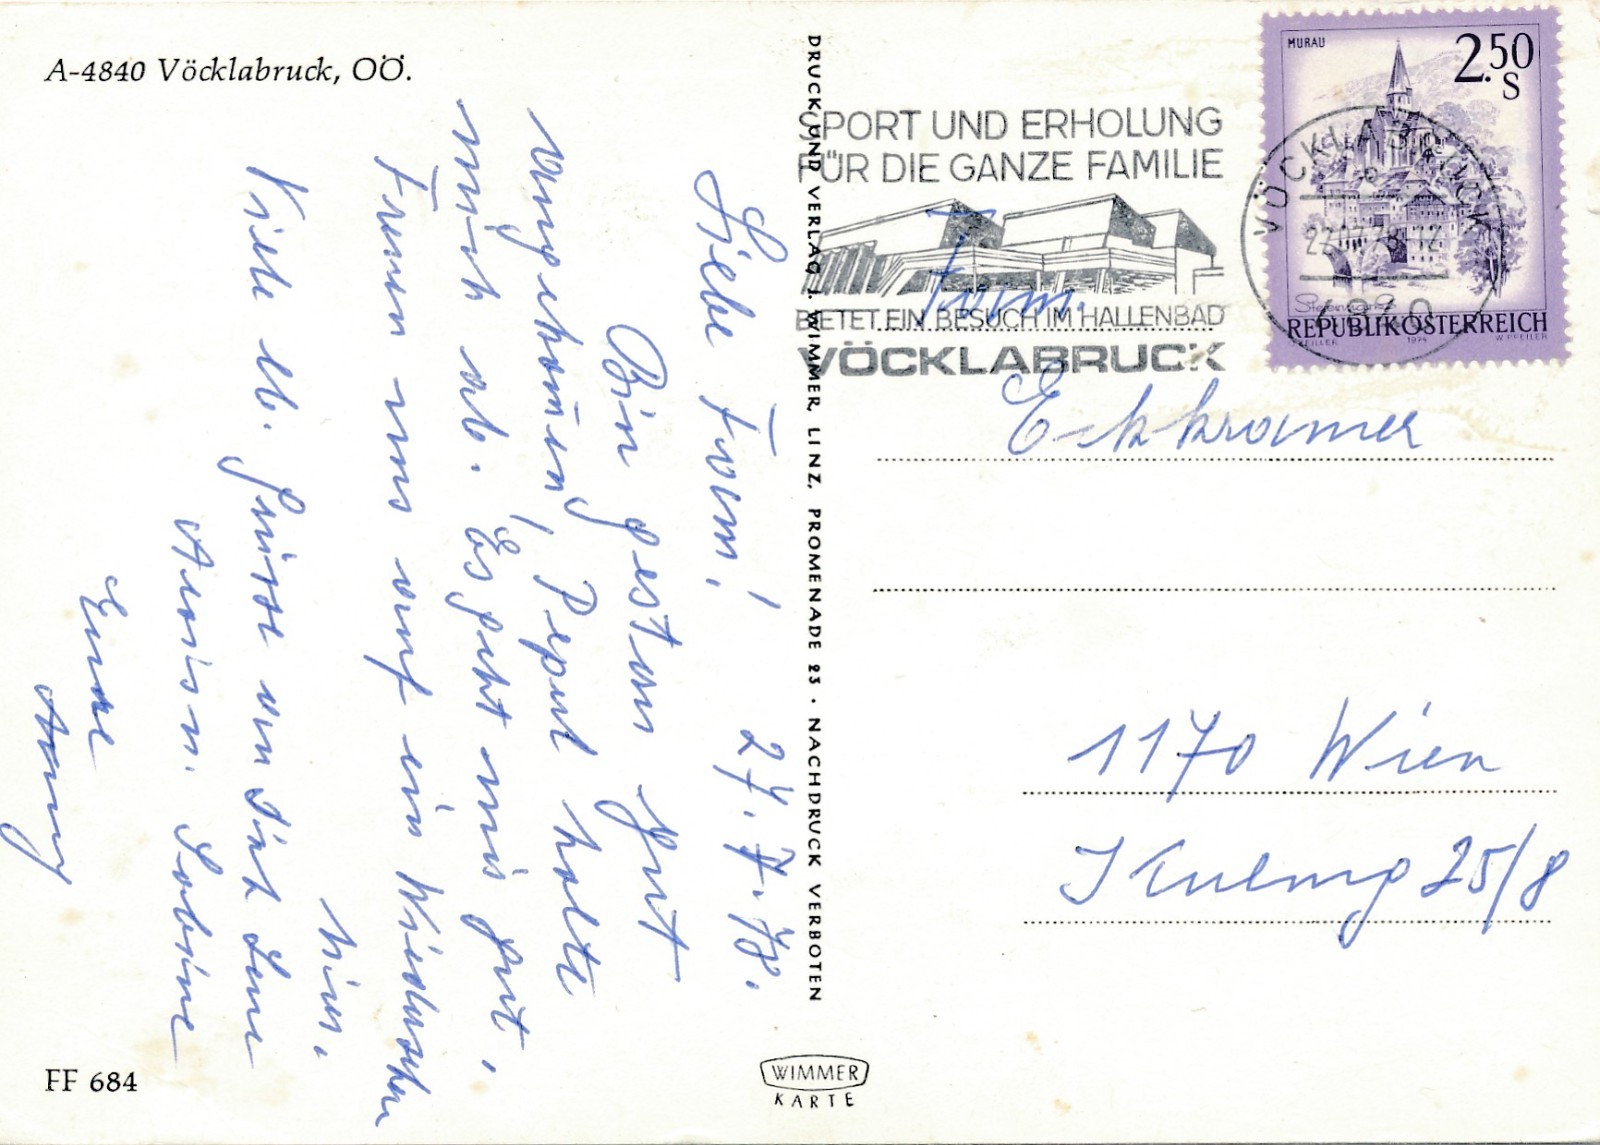 A-4840 Vöcklabruck, OÖ.
Liebe Fam!
27. 7. 78.
Bin gestern gut
angekom̄en, Pepul holte
mich ab. Es geht mir gut,
Freun uns auf ein Wiedersehen
hier.
Viele lb. Grüsse an Dich
Sabine
Eure
Anny
FF 684
DRUCK UND VERLAG J. WIMMER, LINZ, PROMENADE 23 · NACHDRUCK VERBOTEN
WIMMER
KARTE
SPORT UND ERHOLUNG
FÜR DIE GANZE FAMILIE
BIETET EIN BESUCH IM HALLENBAD
VÖCKLABRUCK
MURAU
2.50
S
REPUBLIK ÖSTERREICH
1974
W. PFEILER
VÖCKLABRUCK
4840
Fam.
Eckkramer
1170 Wien
25/8